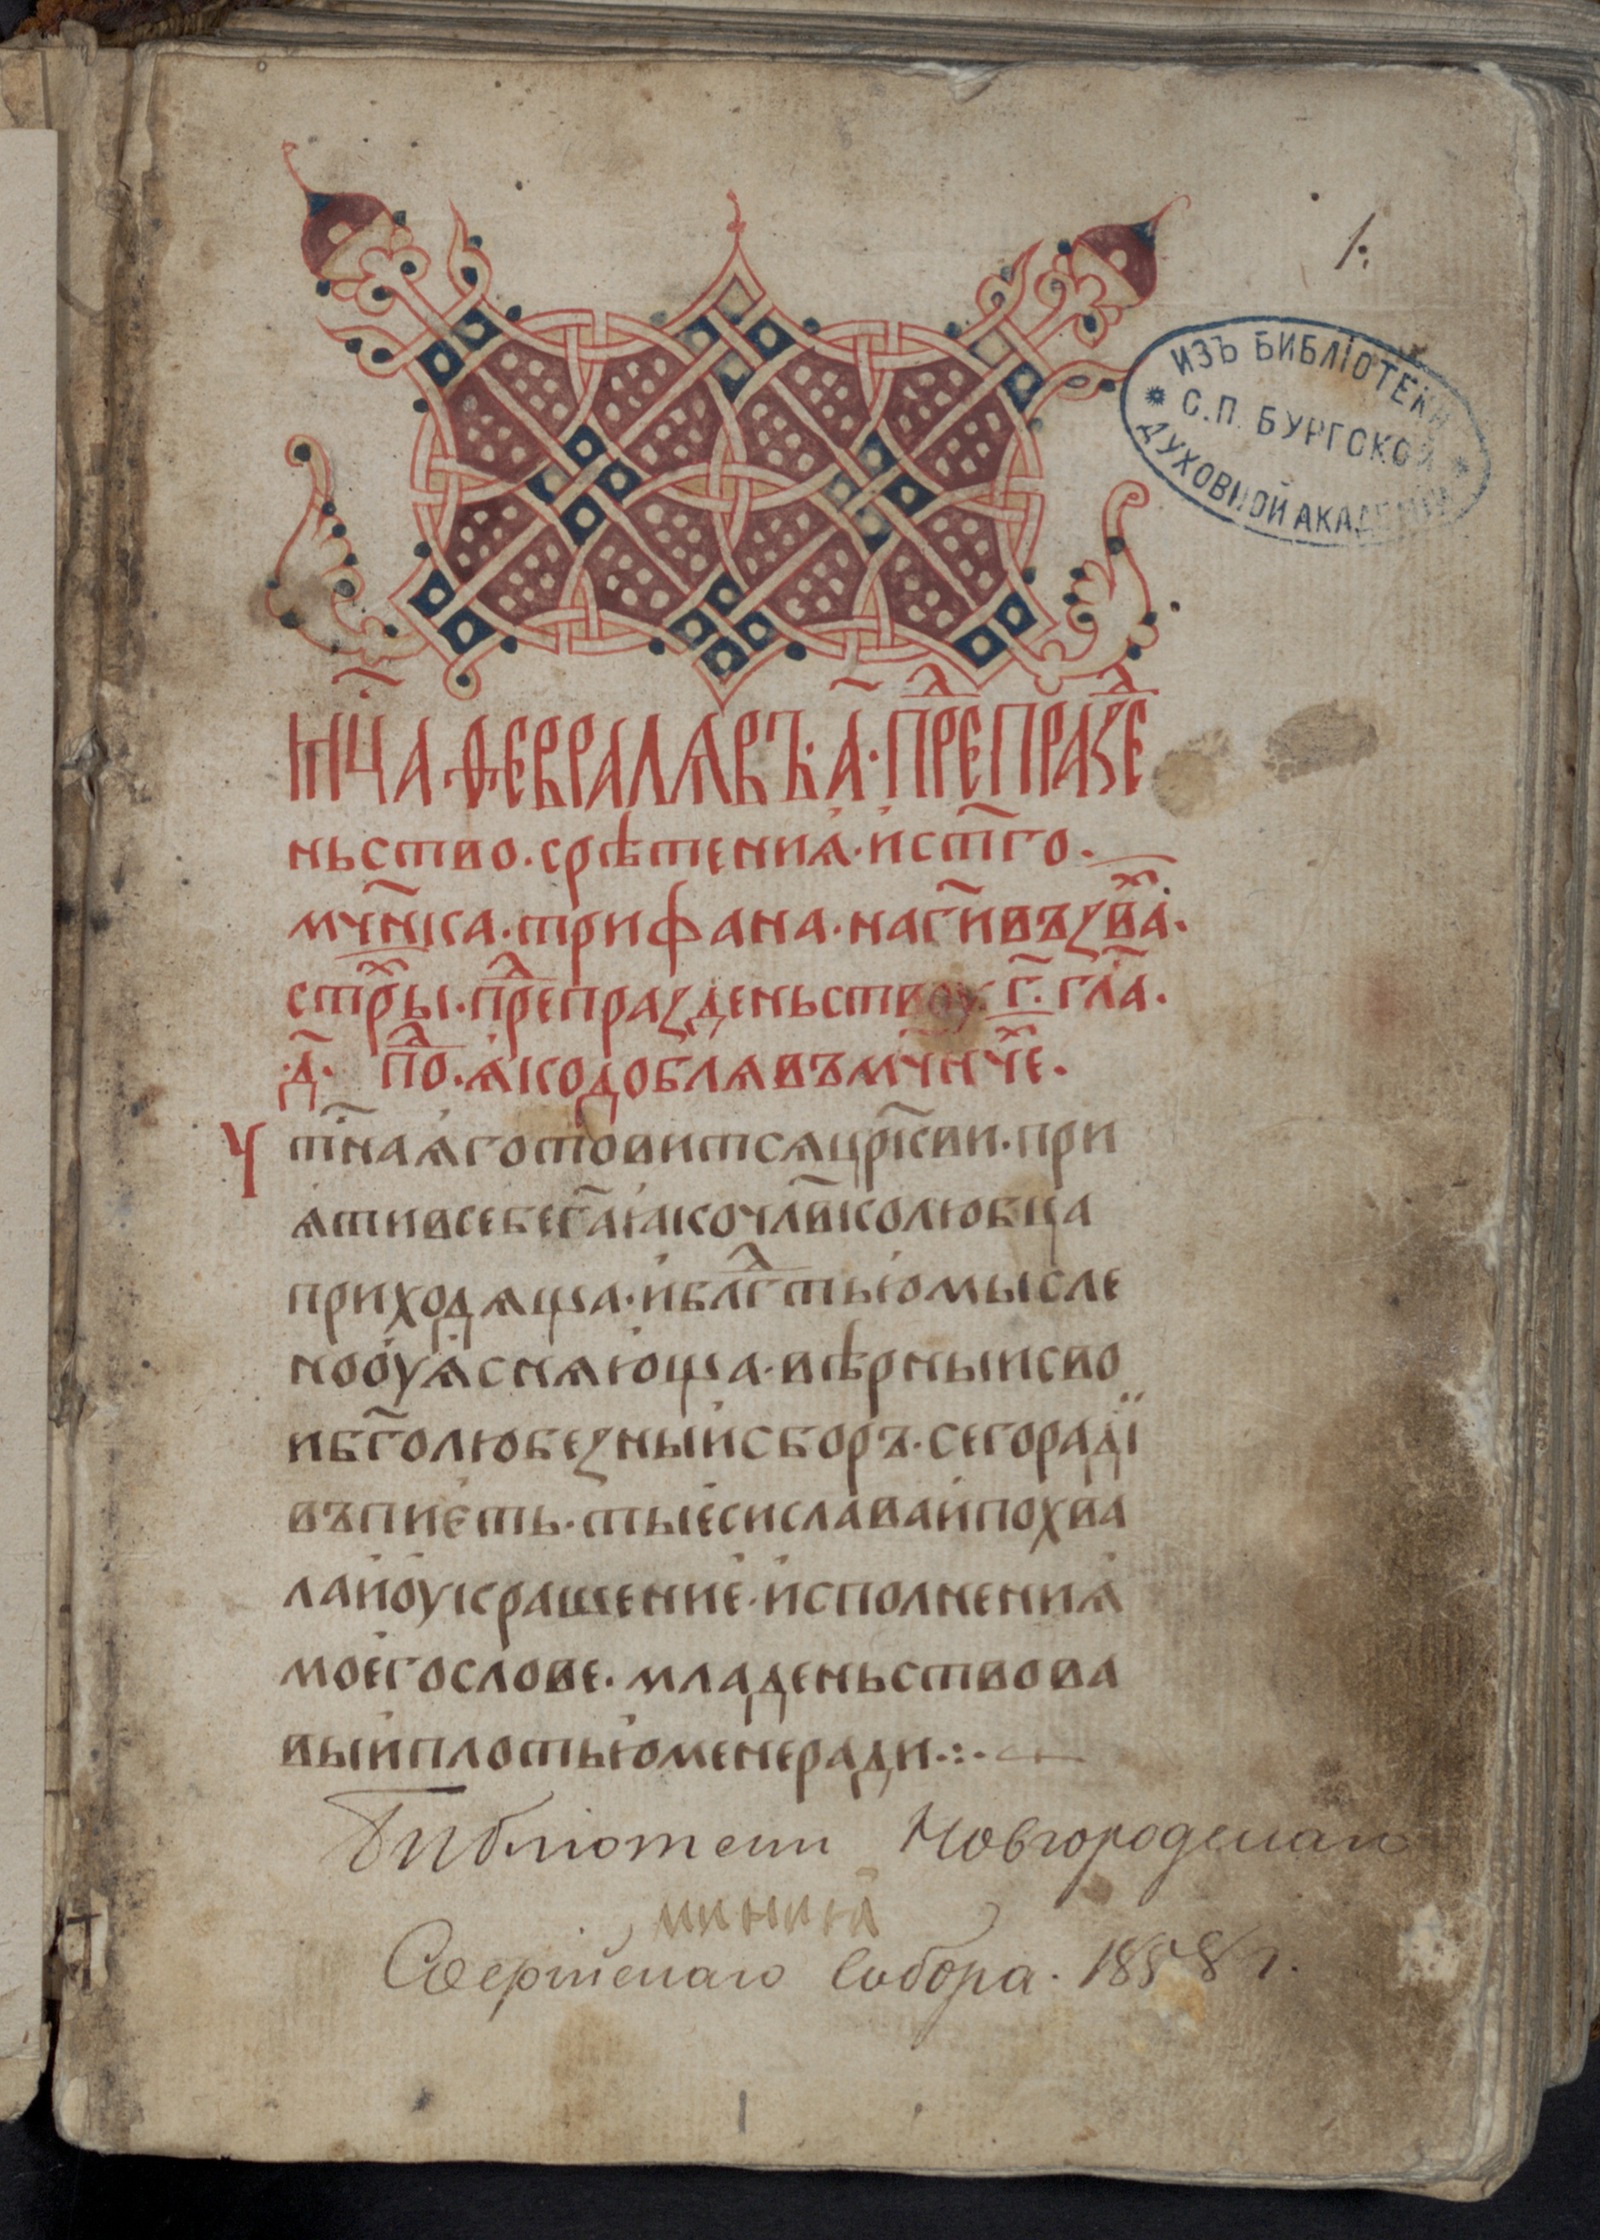 1.
ИЗЪ БИБЛІОТЕКИ
С.П. БУРГСКОЙ
ДУХОВНОЙ АКАДЕМІИ
мц҃а · февралѧ въ · а҃ · прⷣепразⷣе
ньство · срѣтениꙗ · и ст҃го ·
мч҃нка · трифана · на гі҃ въꙁвⷯа ·
стрⷯы · прⷣепраꙁденьствоу · г҃ · гла҃ ·
· д҃ · поⷣ · ꙗко добля въ мч҃нчⷯе ·
Чт҃наꙗ готовитсѧ цр҃кви · при
ꙗти в себе га҃ ꙗко чл҃вколюбца
приходѧща · и блгⷣтью мысле
но оуꙗснѧюща · вѣрныи сво
и бг҃олюбеꙁныи сборъ · сего радї
въпиеть · ты еси слава и похва
ла и оукрашение · исполнениꙗ
моего слове · младеньствова
выи плотью мене ради · : ·
Библіотеки Новгородскаго
Софійскаго Собора. 1858 г.